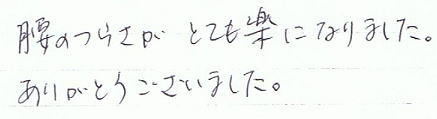 腰のつらさが とても楽になりました。
ありがとうございました。